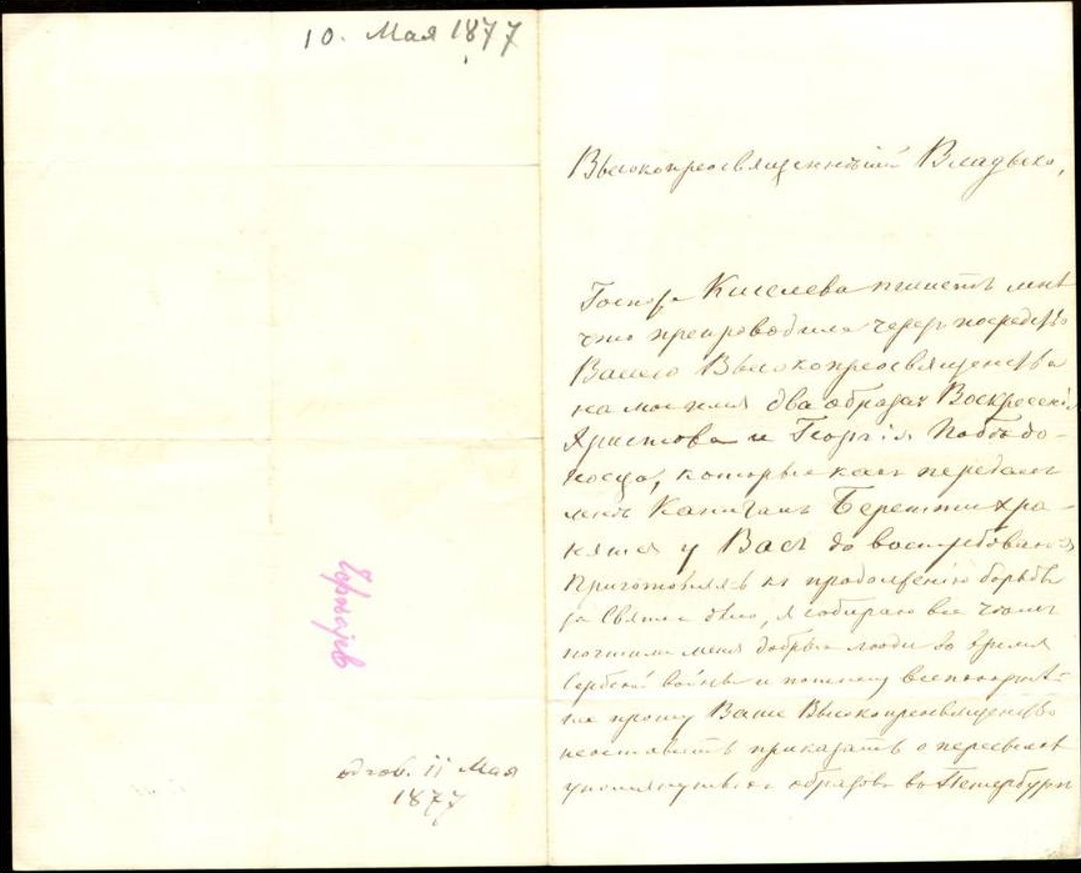 10. Мая 1877
Чернајев
одгов. 11 Мая
1877
Высокопреосвященнѣйшій Владыко,
Госпожа Киселева пишетъ мнѣ
что препроводила черезъ посредство
Вашего Высокопреосвященства
на мое имя два образа: Воскресенія
Христова и Георгія Побѣдо-
носца, которые какъ передалъ
мнѣ Капитанъ хра-
нятся у Васъ до востребованія
Приготовляясь къ продолженію борьбы
за Святое дѣло, я собираю все чѣмъ
почтили меня добрые люди во время
Сербской войны и потому всепокорнѣй-
ше прошу Ваше Высокопреосвященство
неоставить приказать о пересылкѣ
упомянутыхъ образовъ въ Петербургъ